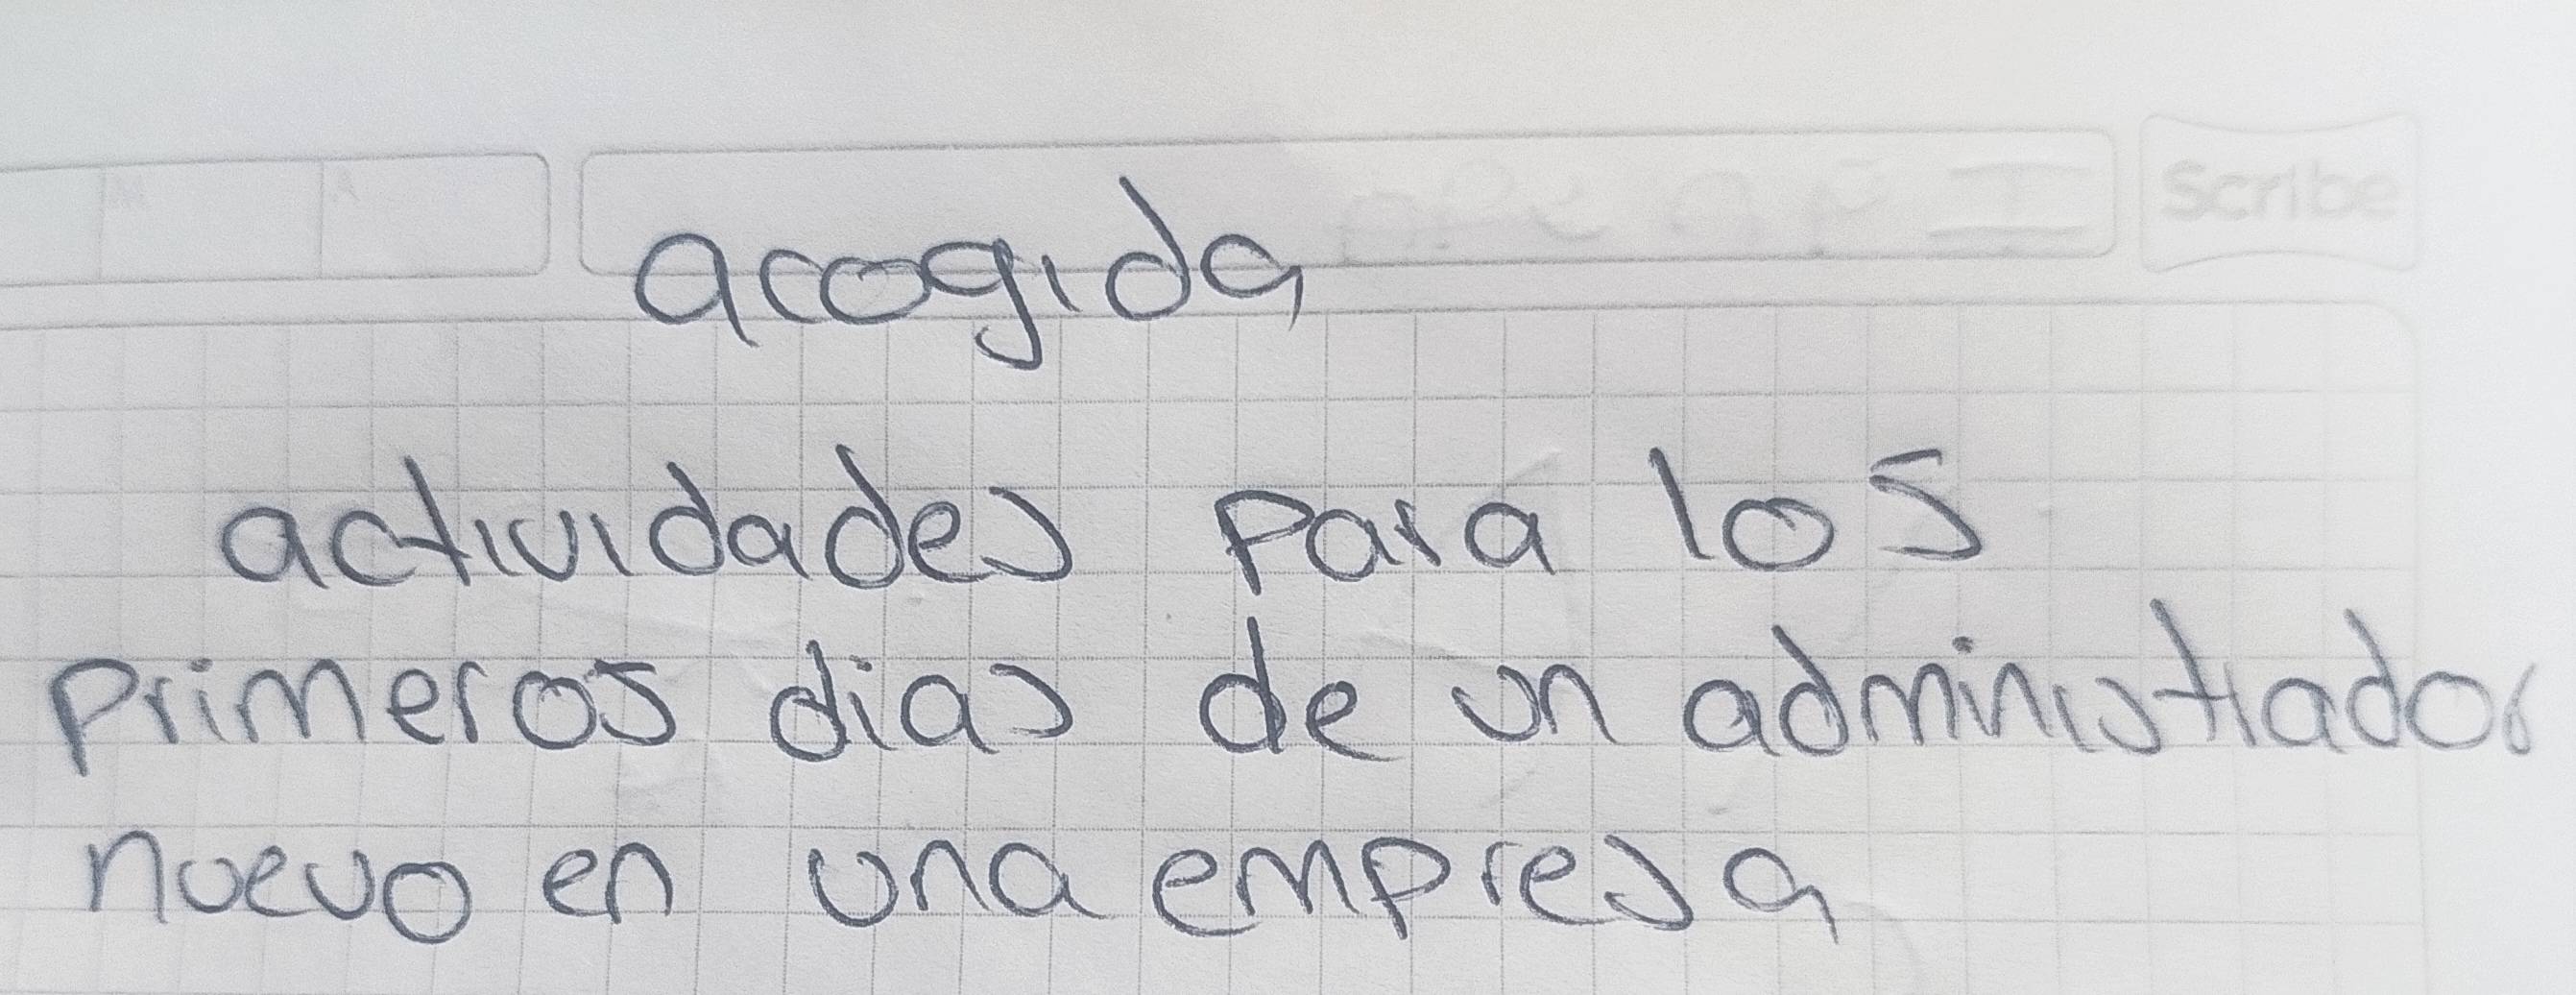 Scribe
acogida
actividades para los
primeros dias de un administrador
nuevo en una empresa